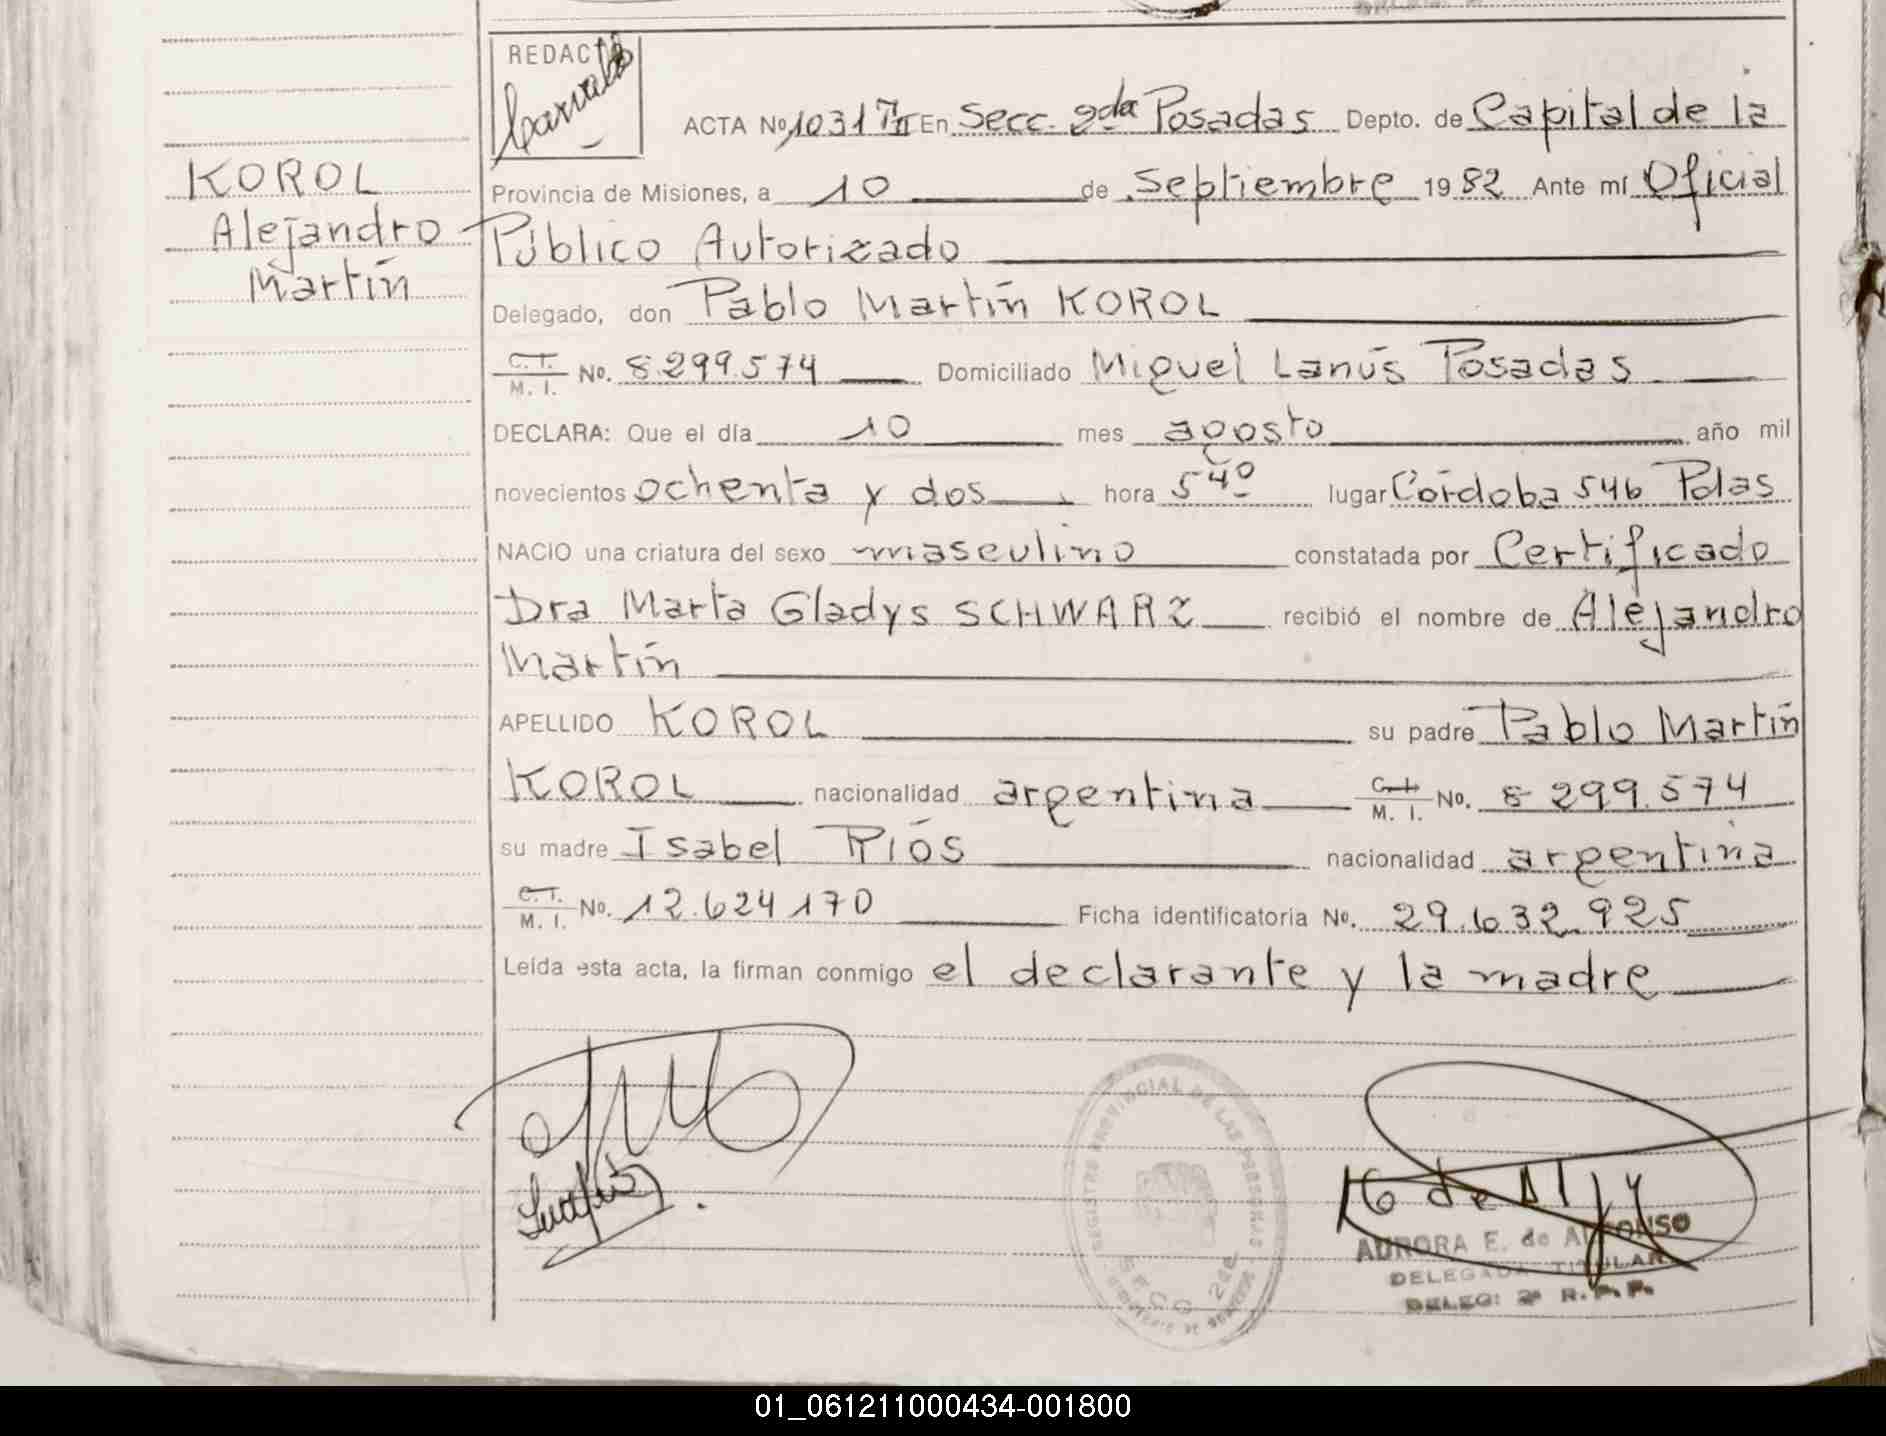 REDACTÓ
KOROL
Alejandro
Martín
ACTA No 1031 TII En Secc. 2da Posadas Depto. de Capital de la
Provincia de Misiones, a 10 de Septiembre 1982 Ante mí Oficial
Público Autorizado
Delegado, don Pablo Martín KOROL
C.I. M. I. No. 8.299.574 Domiciliado Miguel Lanús Posadas
DECLARA: Que el día 10 mes agosto año mil
novecientos ochenta y dos hora 5 40 lugar Córdoba 546 Pdas
NACIO una criatura del sexo masculino constatada por Certificado
Dra Marta Gladys SCHWARZ recibió el nombre de Alejandro
Martín
APELLIDO KOROL su padre Pablo Martín
KOROL nacionalidad argentina C.I. M. I. No. 8 299.574
su madre Isabel Ríos nacionalidad argentina
C.I. M. I. No. 12.624.170 Ficha identificatoria No. 29.632.925
Leída esta acta, la firman conmigo el declarante y la madre
REGISTRO PROVINCIAL DE LAS PERSONAS
SECC 2da
AURORA E. de ALFONSO
DELEGADA TITULAR
DELEG: 2ª R.P.P.
01_061211000434-001800